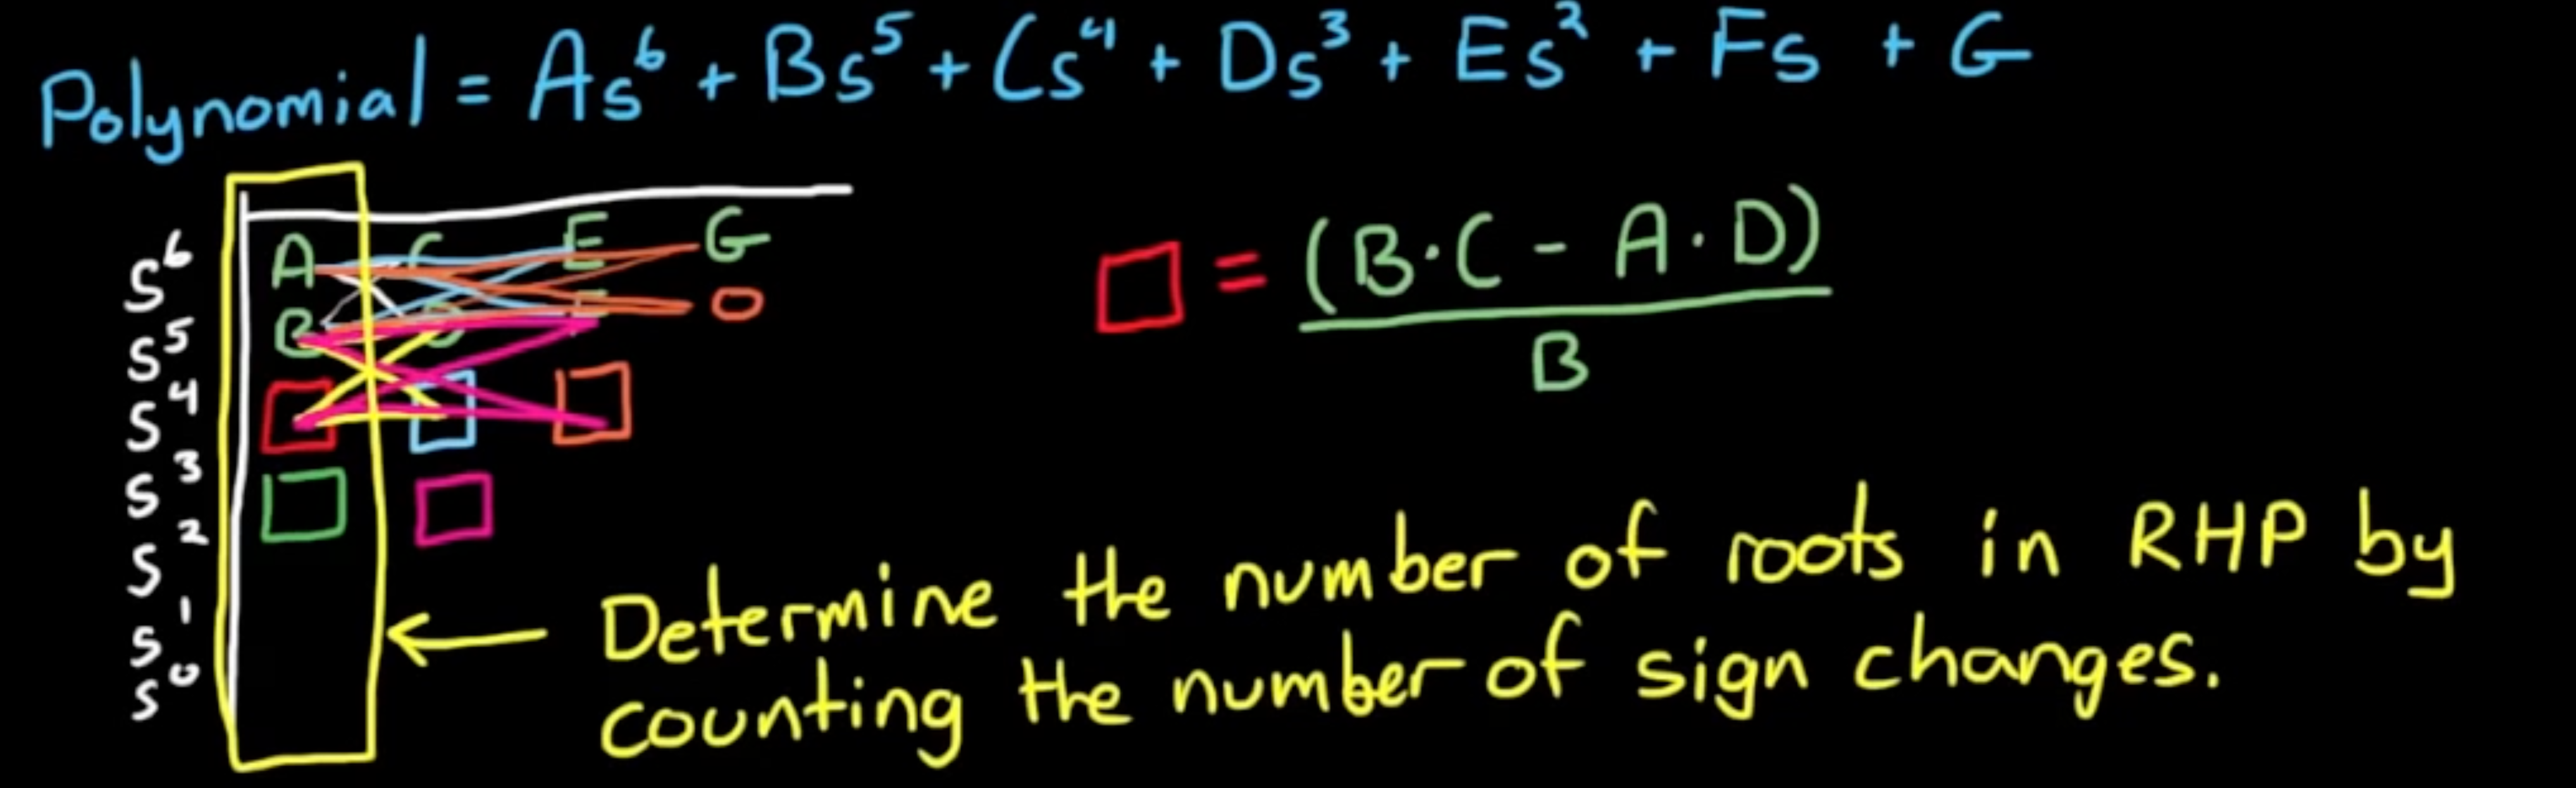 Polynomial = As⁶ + Bs⁵ + Cs⁴ + Ds³ + Es² + Fs + G
s⁶ A C E G
s⁵ B D F 0
s⁴
s³
s²
s¹
s⁰
□ = (B·C - A·D)
B
← Determine the number of roots in RHP by
counting the number of sign changes.